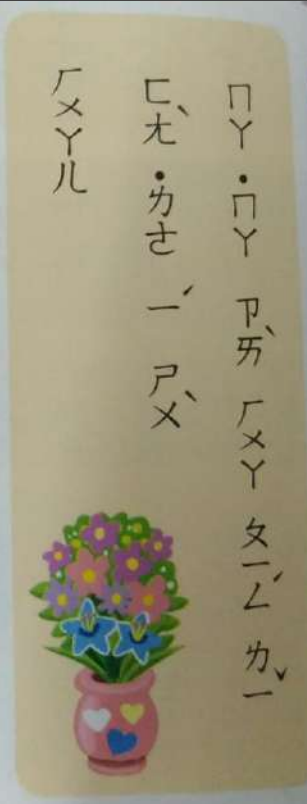 ㄇㄚ ˙ㄇㄚ ㄗㄞˋ ㄏㄨㄚ ㄆㄧㄥˊ ㄌㄧˇ
ㄈㄤˋ ˙ㄌㄜ ㄧˊ ㄕㄨˋ
ㄏㄨㄚㄦ